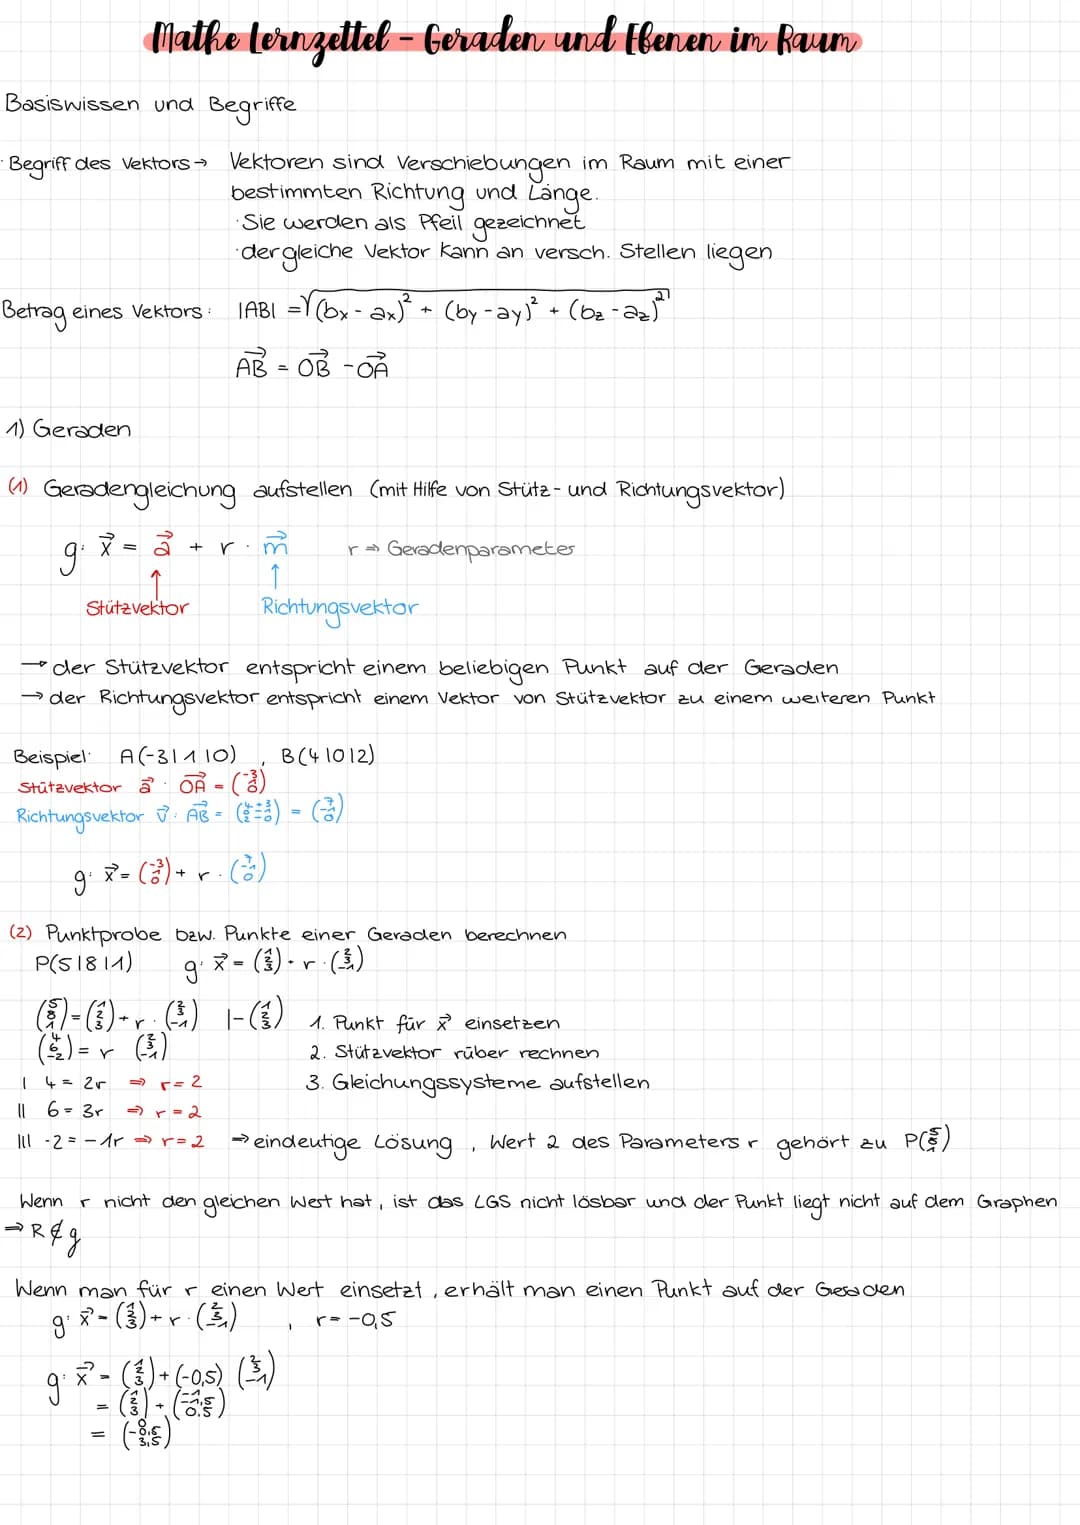 Mathe Lernzettel - Geraden und Ebenen im Raum
Basiswissen und Begriffe
· Begriff des Vektors → Vektoren sind Verschiebungen im Raum mit einer
bestimmten Richtung und Länge.
· Sie werden als Pfeil gezeichnet
· der gleiche Vektor kann an versch. Stellen liegen
Betrag eines Vektors: |AB| = √((bx - ax)² + (by - ay)² + (bz - az)²)
AB⃗ = OB⃗ - OA⃗
1) Geraden
(1) Geradengleichung aufstellen (mit Hilfe von Stütz- und Richtungsvektor)
g: x⃗ = a⃗ + r · m⃗ r ⇒ Geradenparameter
↑ ↑
Stützvektor Richtungsvektor
→ der Stützvektor entspricht einem beliebigen Punkt auf der Geraden
→ der Richtungsvektor entspricht einem Vektor von Stützvektor zu einem weiteren Punkt
Beispiel: A(-3|1|0) , B(4|0|2)
Stützvektor a⃗ : OA⃗ = (-3 1 0)
Richtungsvektor v⃗ : AB⃗
g: x⃗ = (-3 1 0) + r ·
(2) Punktprobe bzw. Punkte einer Geraden berechnen
P(5|8|1) g: x⃗ = (1 2 3) + r · (2 3 -1)
(5 8 1) = (1 2 3) + r · (2 3 -1) |- (1 2 3) 1. Punkt für x⃗ einsetzen
(4 6 -2) = r (2 3 -1) 2. Stützvektor rüber rechnen
I 4 = 2r ⇒ r = 2 3. Gleichungssysteme aufstellen
II 6 = 3r ⇒ r = 2
III -2 = -1r ⇒ r = 2 ⇒ eindeutige Lösung , Wert 2 des Parameters r gehört zu P(5 8 1)
Wenn r nicht den gleichen Wert hat, ist das LGS nicht lösbar und der Punkt liegt nicht auf dem Graphen
⇒ R ∉ g
Wenn man für r einen Wert einsetzt, erhält man einen Punkt auf der Geraden
g: x⃗ = (1 2 3) + r · (2 3 -1) , r = -0,5
g: x⃗ = (1 2 3) + (-0,5) (2 3 -1)
= (1 2 3) + (-1 -1,5 0,5)
= (0 0,5 3,5)